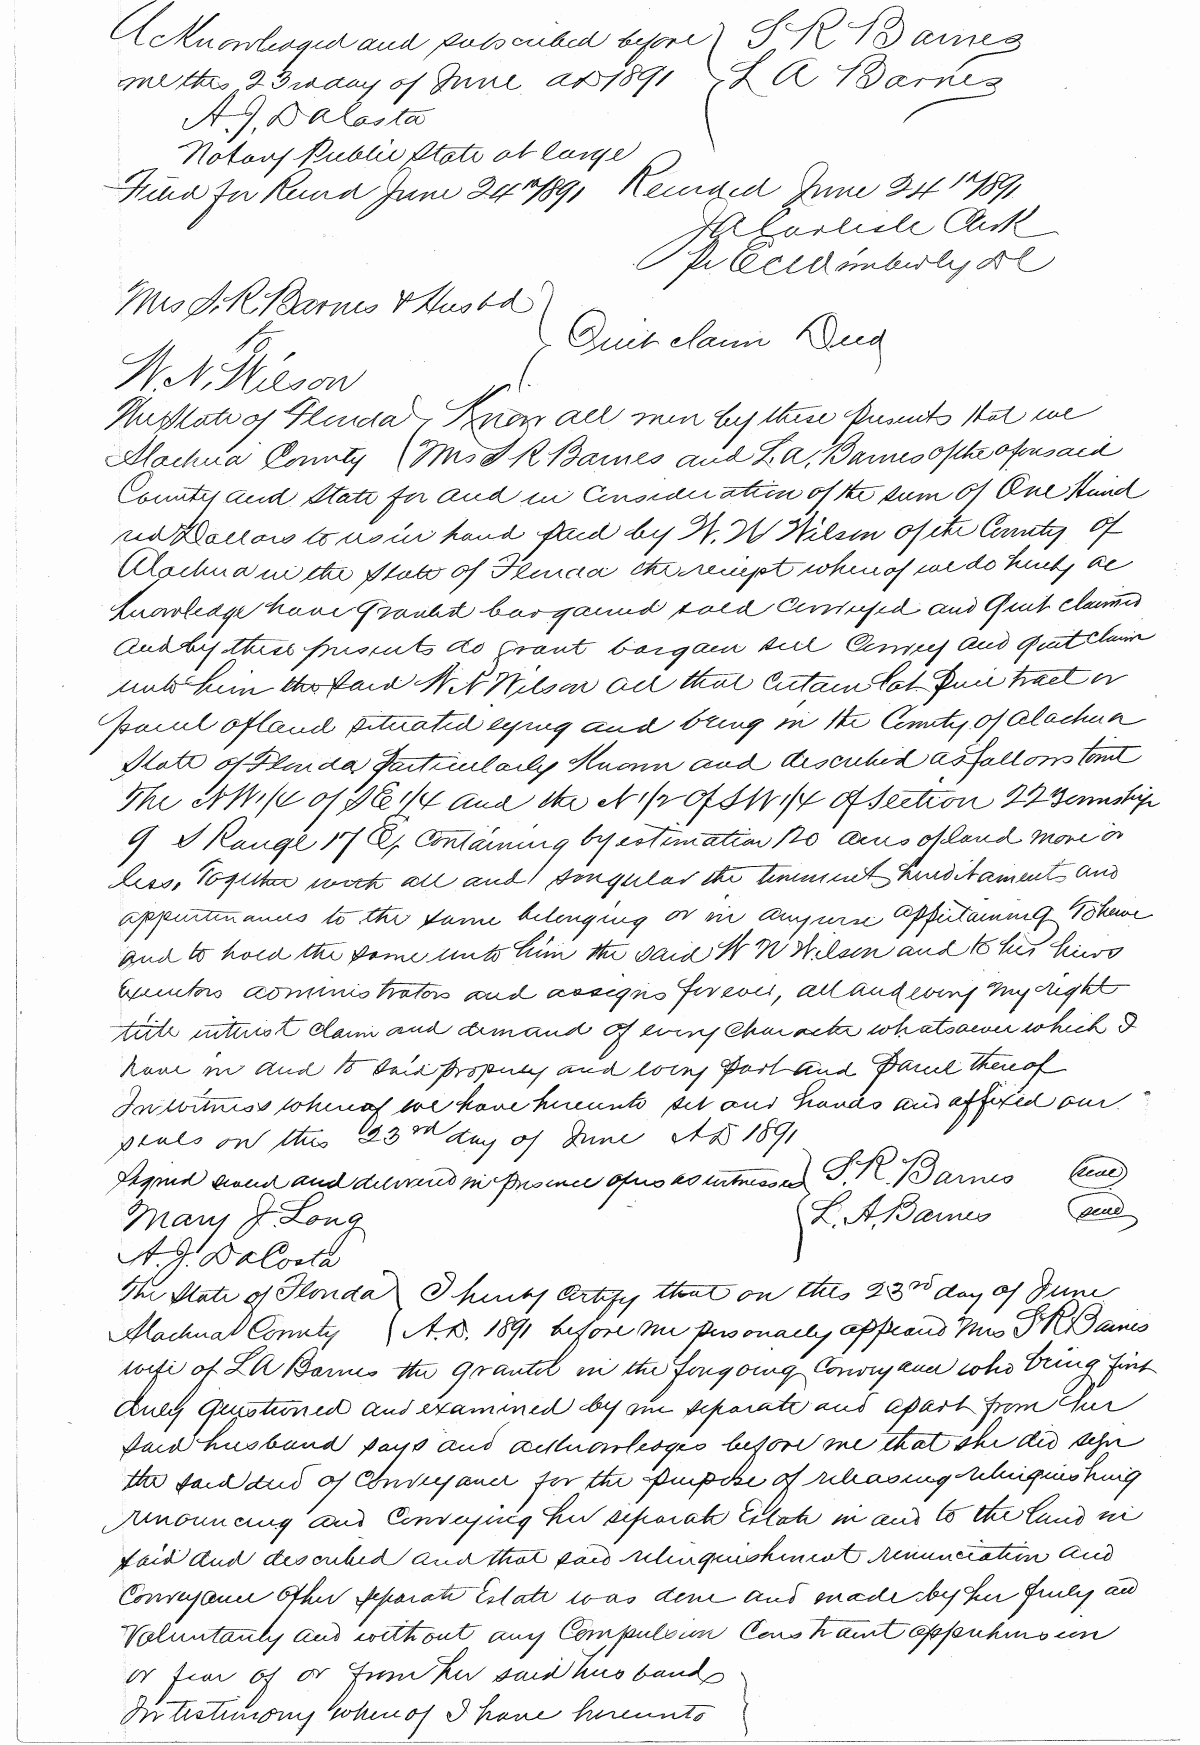 Acknowledged and subscribed before } S R Barnes
me this 23rd day of June AD 1891 L A Barnes
A. J. DaCosta
Notary Public State at large
Filed for Record June 24th 1891 Recorded June 24th 1891
J A Carlisle Clerk
Pr Wimberly DC
Mrs S. R. Barnes & Husbd
to
Quit claim Deed
W. N. Wilson
The State of Florida } Know all men by these presents that we
Alachua County Mrs S R Barnes and L. A. Barnes of the aforesaid
County and State for and in Consideration of the sum of One Hund
red Dollars to us in hand paid by W. N Wilson of the County of
Alachua in the State of Florida the reciept whereof we do hereby ac
knowledge have Granted bargained sold Conveyed and Quit claimed
and by these presents do grant bargain sell Convey and quit claim
unto him the said W N Wilson all that Certain lot Piece tract or
parcel of land situated lying and being in the County of Alachua
State of Florida Particularly Known and described as follows towit
The NW 1/4 of SE 1/4 and the N 1/2 of SW 1/4 of Section 22 Township
9 S Range 17 E, Containing by estimation 120 acres of land more or
less, Together with all and singular the tenement hereditaments and
appurtenances to the same belonging or in anywise appertaining To have
and to hold the same unto him the said W N Wilson and to his heirs
Executors administrators and assigns forever, all and every my right
title interest claim and demand of every Character whatsoever which I
have in and to said property and every Part and Parcel thereof
In witness whereof we have hereunto set our hands and affixed our
seals on this 23rd day of June AD 1891
Signed sealed and delivered in presence of us as witnesses } S. R. Barnes (seal)
Mary J. Long L. A. Barnes (seal)
A. J. DaCosta
The State of Florida } I hereby Certify that on this 23rd day of June
Alachua County A.D. 1891 before me personally appeared Mrs S R Barnes
wife of L A Barnes the grantee in the foregoing Conveyance who being first
duly questioned and examined by me separate and apart from her
said husband says and acknowledges before me that she did sign
the said deed of Conveyance for the purpose of releasing relinquishing
renouncing and Conveying her separate Estate in and to the land in
said deed described and that said relinquishment renunciation and
Conveyance of her separate Estate was done and made by her freely and
Voluntarily and without any Compulsion Constraint apprehension
or fear of or from her said husband
In testimony whereof I have hereunto